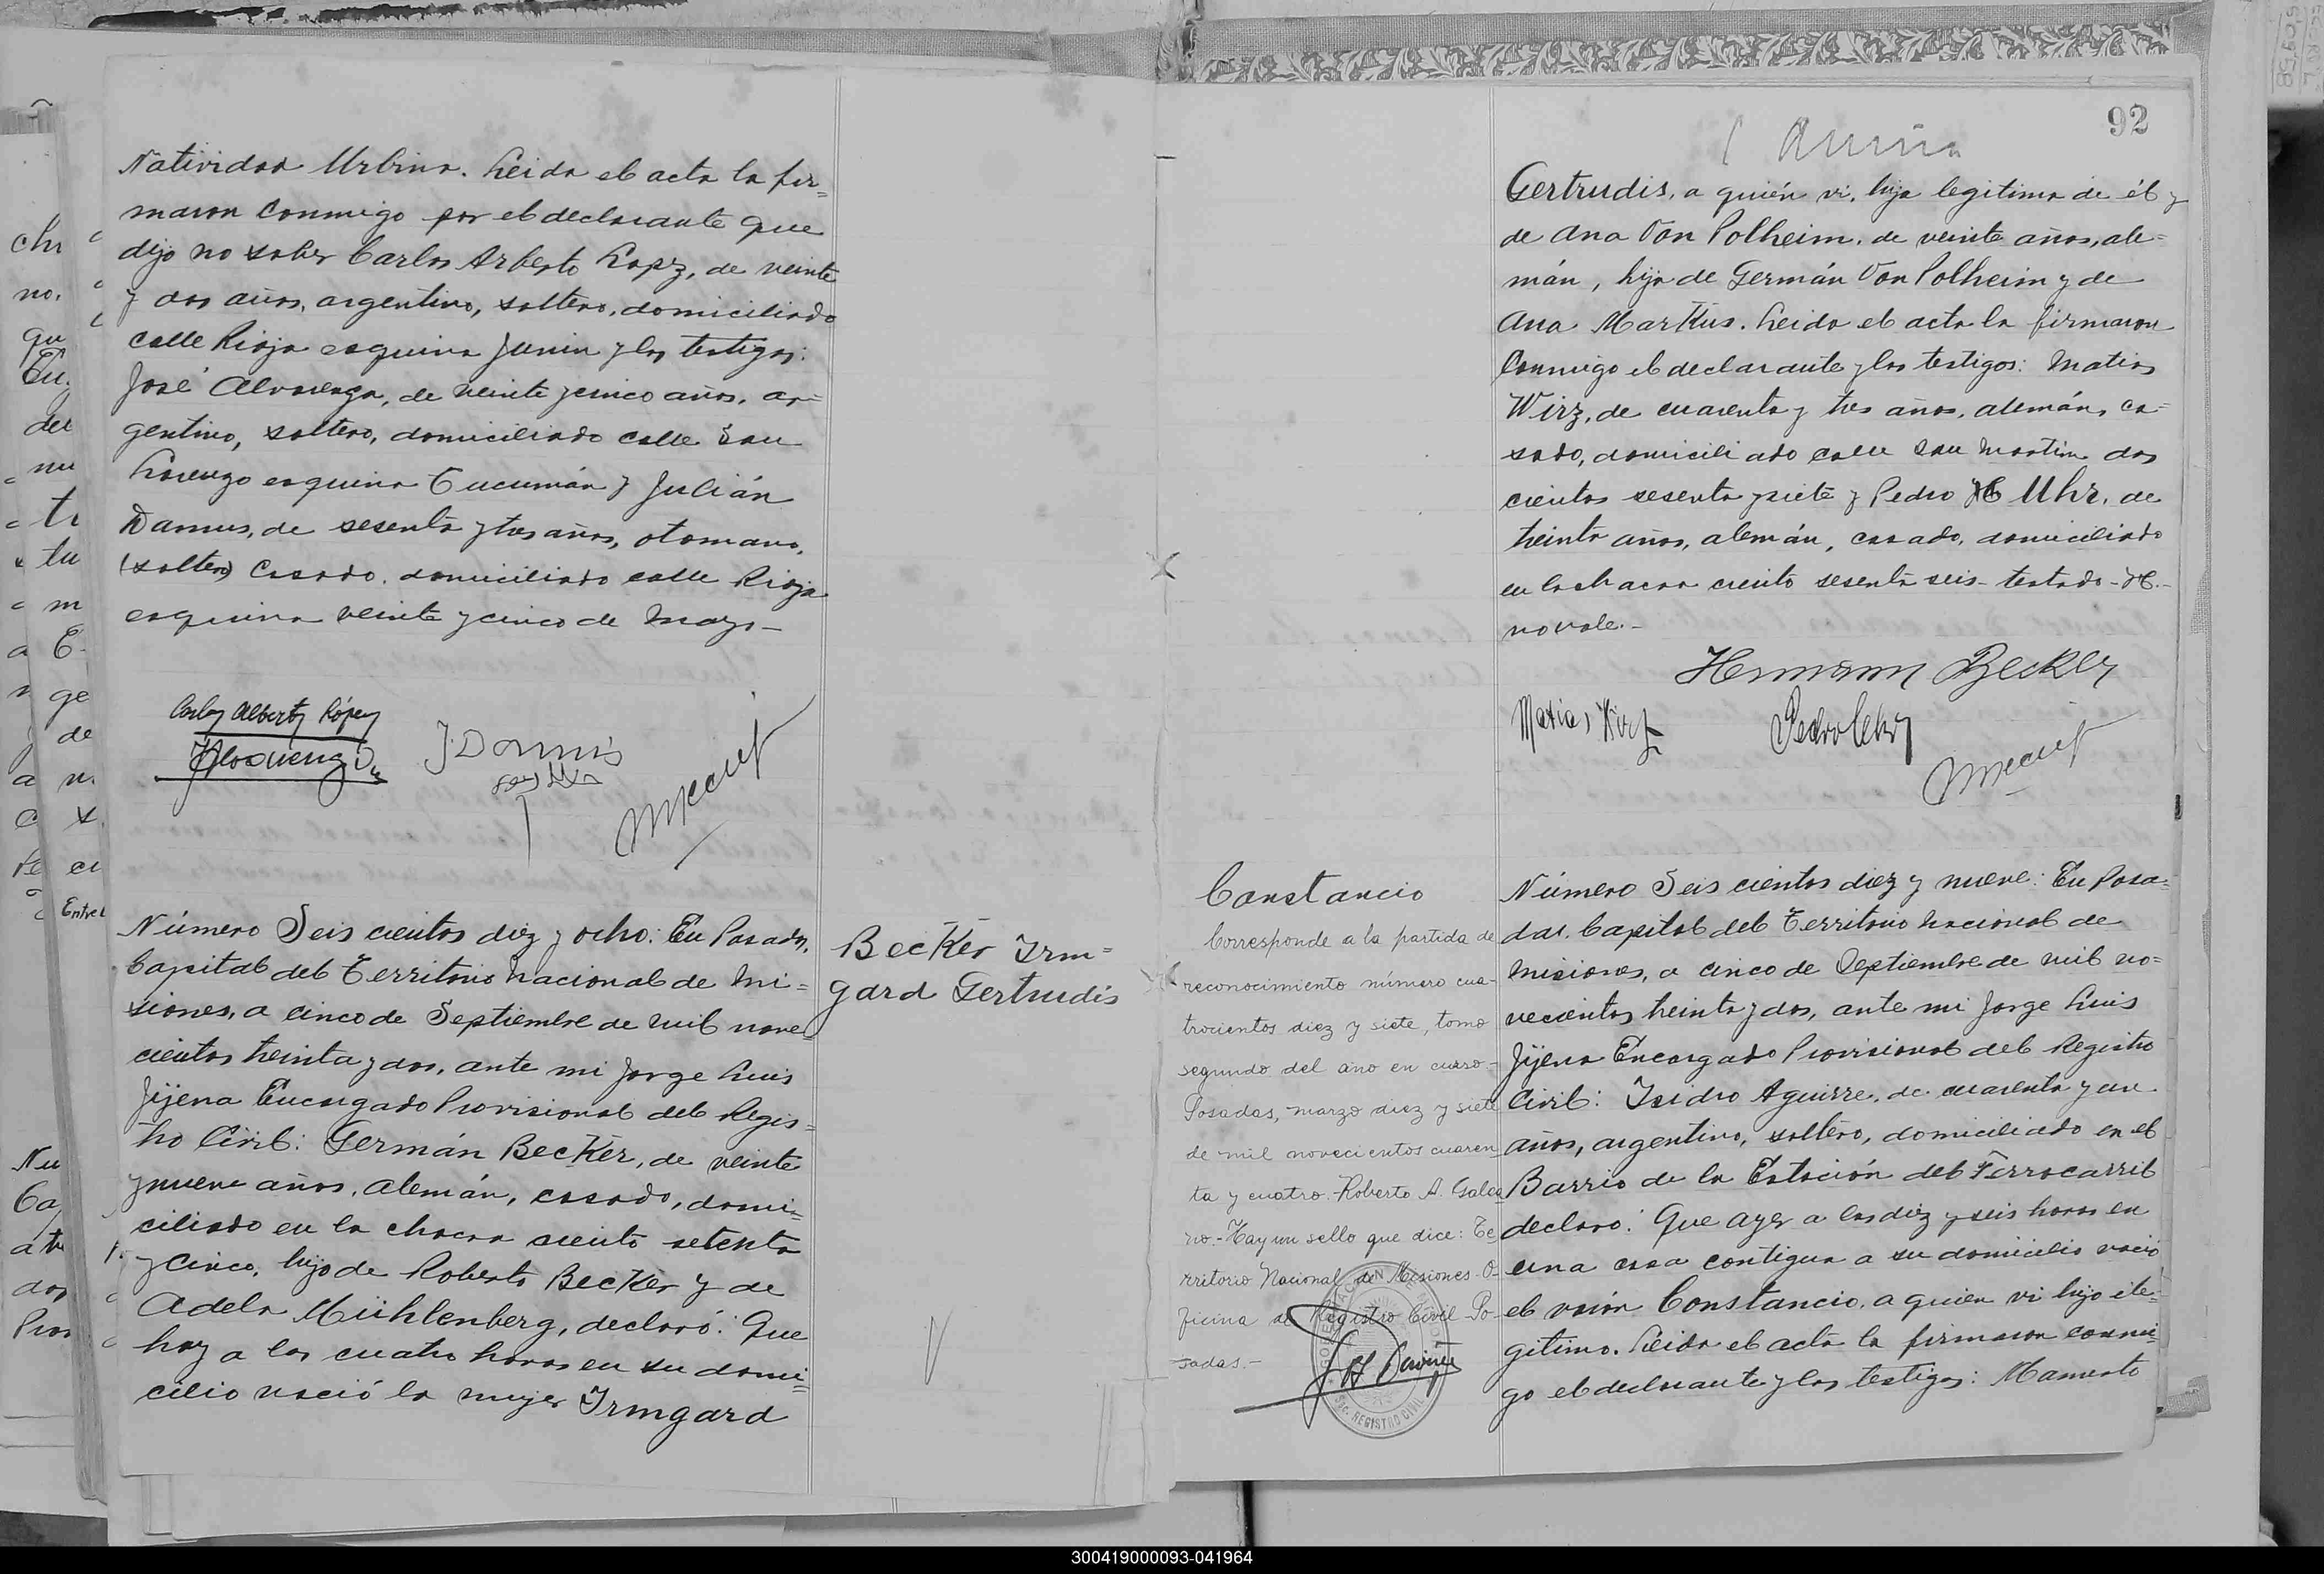 Natividad Urbina. Leida el acta la fir=
maron conmigo por el declarante que
dijo no saber Carlos Arberto Lopz, de veinte
y dos años, argentino, soltero, domiciliado
calle Rioja esquina Junin y los testigos:
José Alvarenga, de veinte y cinco años, ar=
gentino, soltero, domiciliado calle San
Lorenzo esquina Tucumán y Julián
Damus, de sesenta y tres años, otomano,
(soltero) casado, domiciliado calle Rioja
esquina veinte y cinco de Mayo -
Carlos Alberto López
Número Seis cientos diez y ocho: En Posadas,
Capital del Territorio nacional de Mi=
siones, a cinco de Septiembre de mil nove
cientos treinta y dos, ante mi Jorge Luis
Jijena Encargado Provisional del Regis=
tro Civil: Germán Becker, de veinte
y nueve años, alemán, casado, domi=
ciliado en la chacra ciento setenta
y cinco, hijo de Roberto Becker y de
Adela Mühlenberg, declaró: Que
hoy a las cuatro horas en su domi=
cilio nació la mujer Irmgard
Becker Irm=
gard Gertrudis
92
Gertrudis, a quién vi, hija legitima de él y
de Ana Von Polheim, de veinte años, ale=
mán, hija de Germán Von Polheim y de
Ana Markus. Leida el acta la firmaron
conmigo el declarante y los testigos: Matias
Wirz, de cuarenta y tres años, alemán, ca=
sado, domiciliado calle San Martin dos
cientos sesenta y siete y Pedro Uhr, de
treinta años, alemán, casado, domiciliado
en la chacra ciento sesenta seis - testado -
no vale.-
Hermann Becker
Matias Wirz
Pedro Uhr
Constancio
Corresponde a la partida de
reconocimiento número cua-
trocientos diez y siete, tomo
segundo del año en curso.-
Posadas, marzo diez y siete
de mil novecientos cuaren
ta y cuatro. Roberto A. Galea
no.- Hay un sello que dice: Te
rritorio Nacional de Misiones. O-
ficina de Registro Civil - Po-
sadas.-
REGISTRO CIVIL
Número Seis cientos diez y nueve: En Posa=
das, Capital del Territorio nacional de
Misiones, a cinco de Septiembre de mil no=
vecientos treinta y dos, ante mi Jorge Luis
Jijena Encargado Provisional del Registro
Civil: Isidro Aguirre, de cuarenta y un
años, argentino, soltero, domiciliado en el
Barrio de la Estación del Ferrocarril
declaro: Que ayer a las diez y seis horas en
una casa contigua a su domicilio nació
el varón Constancio, a quien vi hijo ile=
gitimo. Leida el acta la firmaron conmi=
go el declarante y los testigos: Mamerto
300419000093-041964